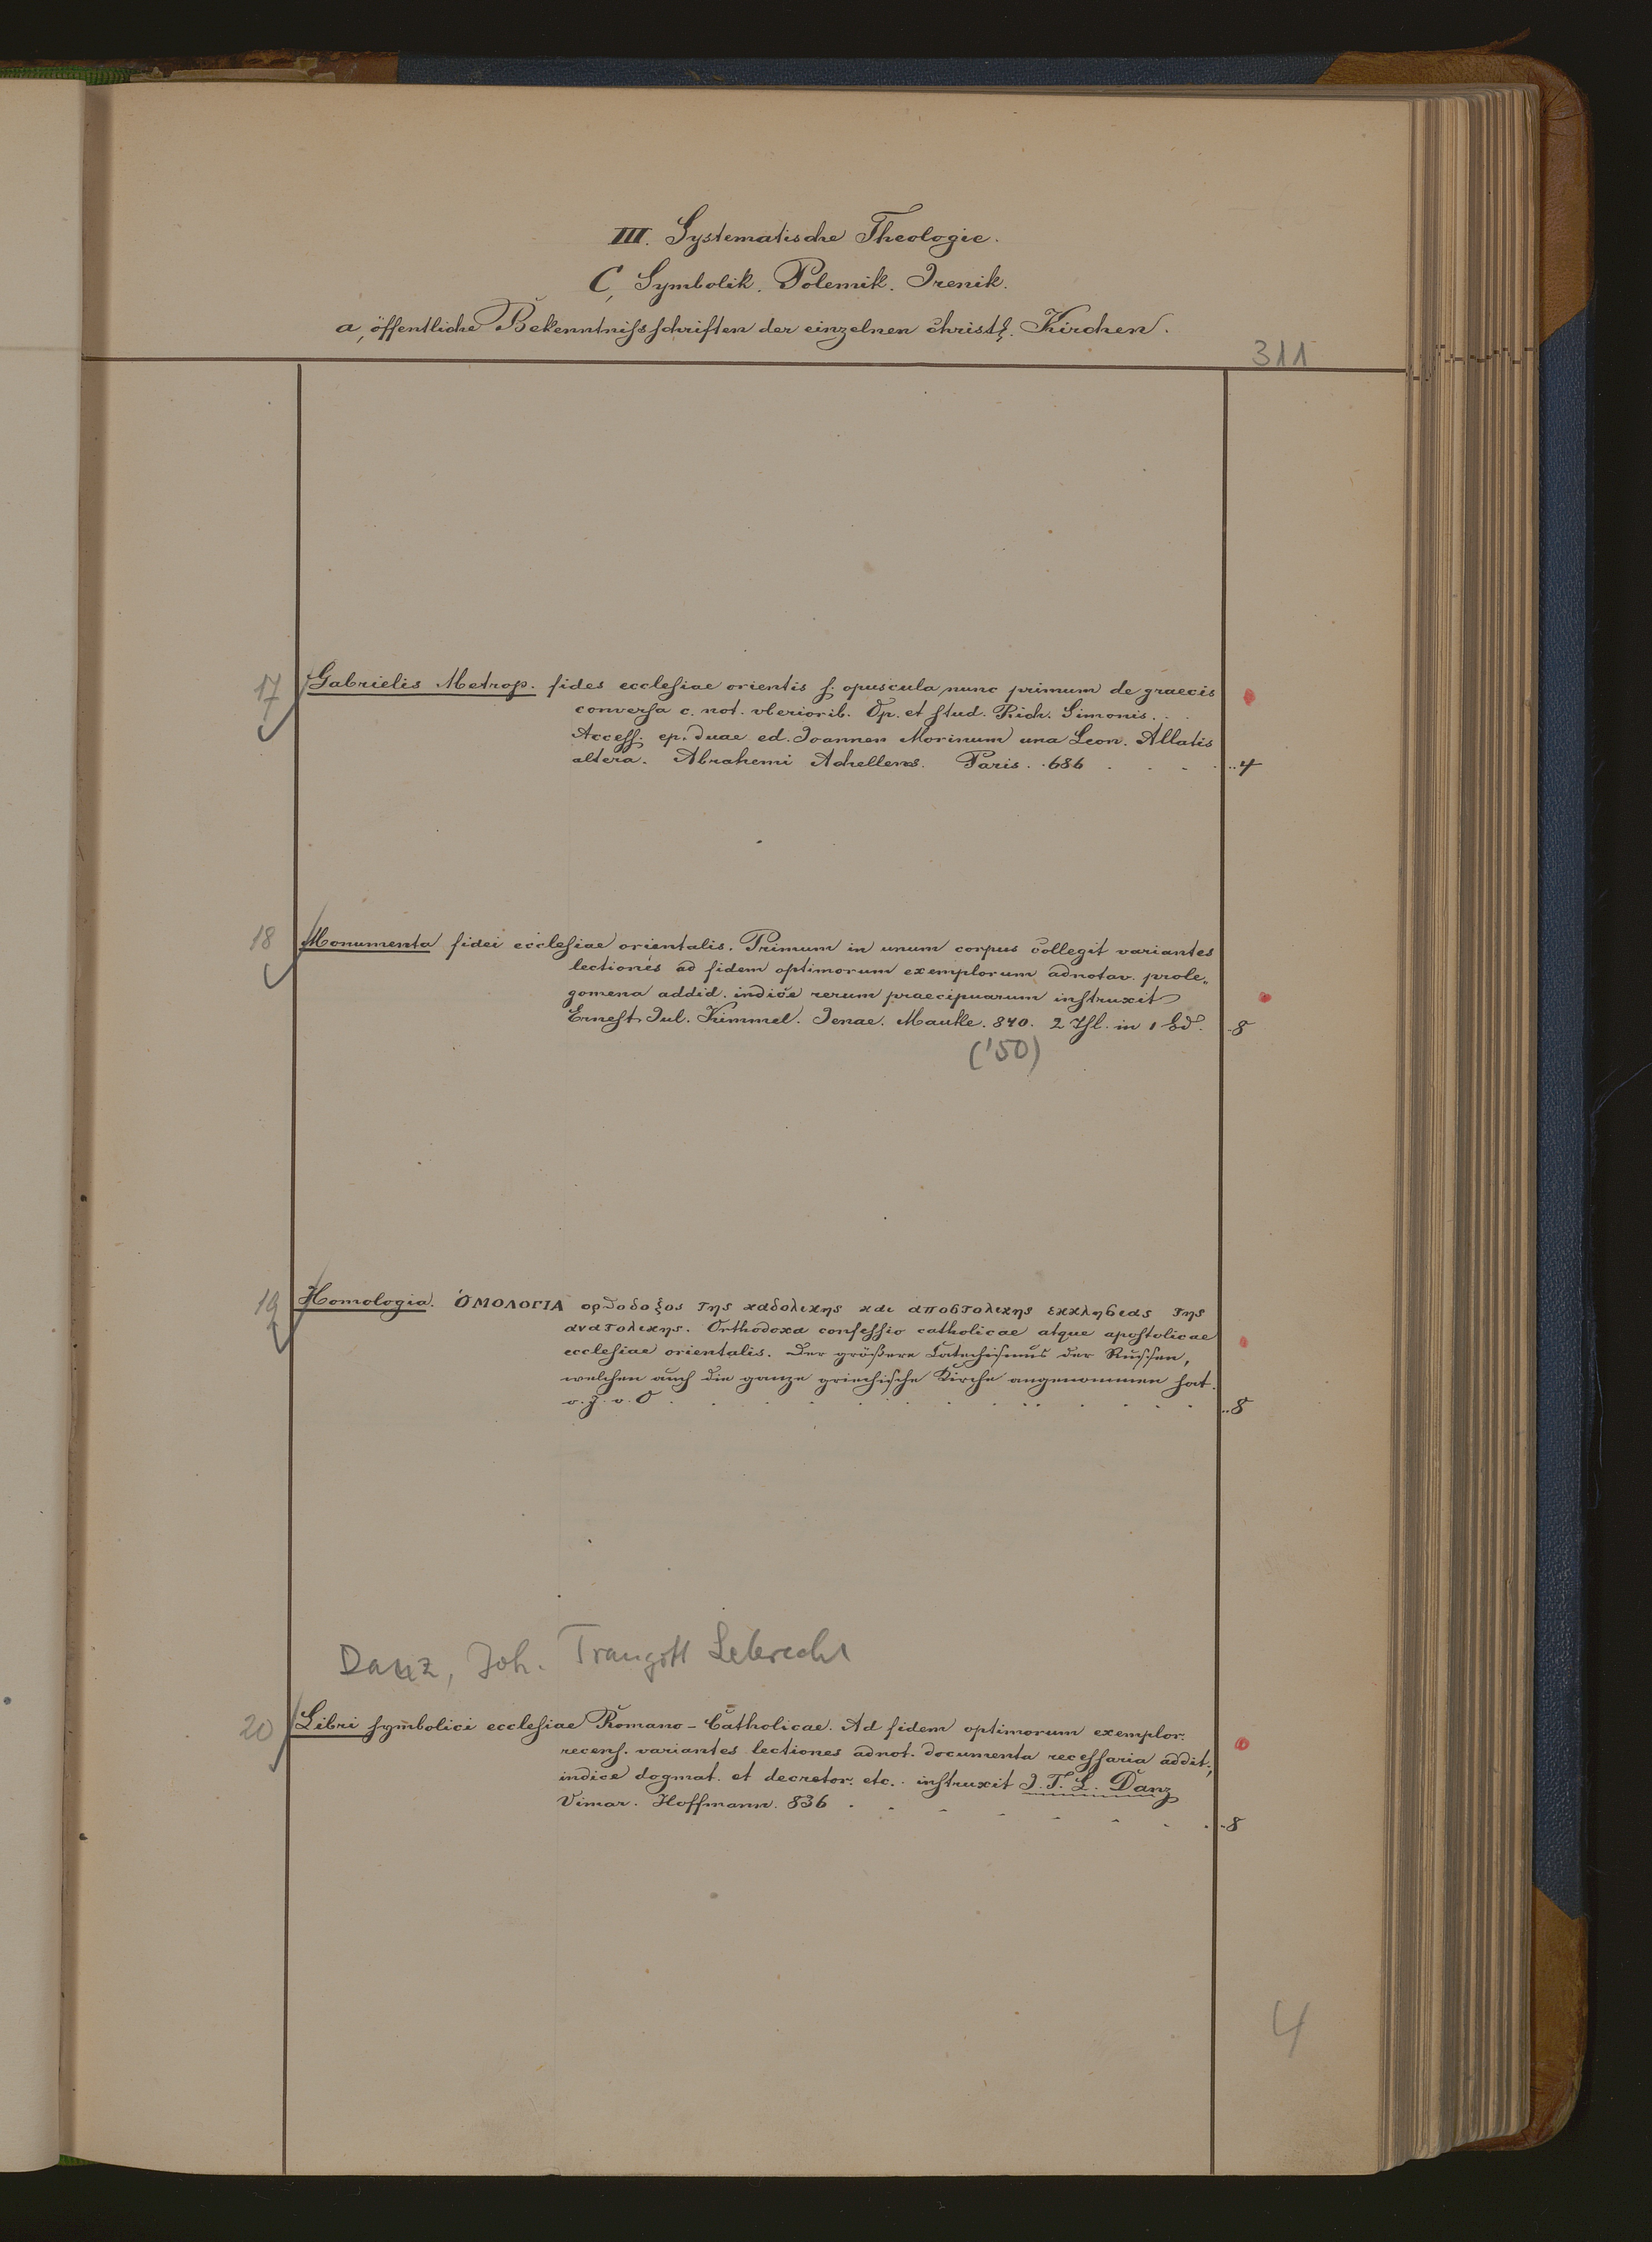 III. Systematische Theologie.
C, Symbolik. Polemik. Irenik.
a, öffentliche Bekenntnißschriften der einzelnen christl. Kirchen.
311
17 Gabrielis Metrop. fides ecclesiae orientis s. opuscula nunc primum de graecis
conversa c. not. vberiorib. Op. et stud. Rich. Simonis. . .
Access. ep. duae ed. Joannen Morinum una Leon. Allatis
altera. Abrahemi Achellens. Paris. .686 . . . . ..4
18 Monumenta fidei ecclesiae orientalis. Primum in unum corpus collegit variantes
lectiones ad fidem optimorum exemplorum adnotav. prole„
gomena addid. indice rerum praecipuarum instruxit
Ernest Jul. Kimmel. Jenae. Mauke. 840. 2 Thl. in 1 Bd. .8
('50)
19 Homologia. ὉΜΟΛΟΓΙΑ ορθοδοξος της καθολικης και αποστολικης εκκλησιας της
ανατολικης. Orthodoxa confessio catholicae atque apostolicae
ecclesiae orientalis. Der größere Catechismus der Russen,
welchen auch die ganze griechische Kirche angenommen hat.
o. J. o. O . . . . . . . . . . ..8
Danz, Joh. Traugott Lebrecht
20 Libri symbolici ecclesiae Romano-Catholicae. Ad fidem optimorum exemplor.
recens. variantes lectiones adnot. documenta recessaria addit.,
indice dogmat. et decretor. etc. instruxit J. T. L. Danz
Vimar. Hoffmann. 836 . . . . . . . ..8
4